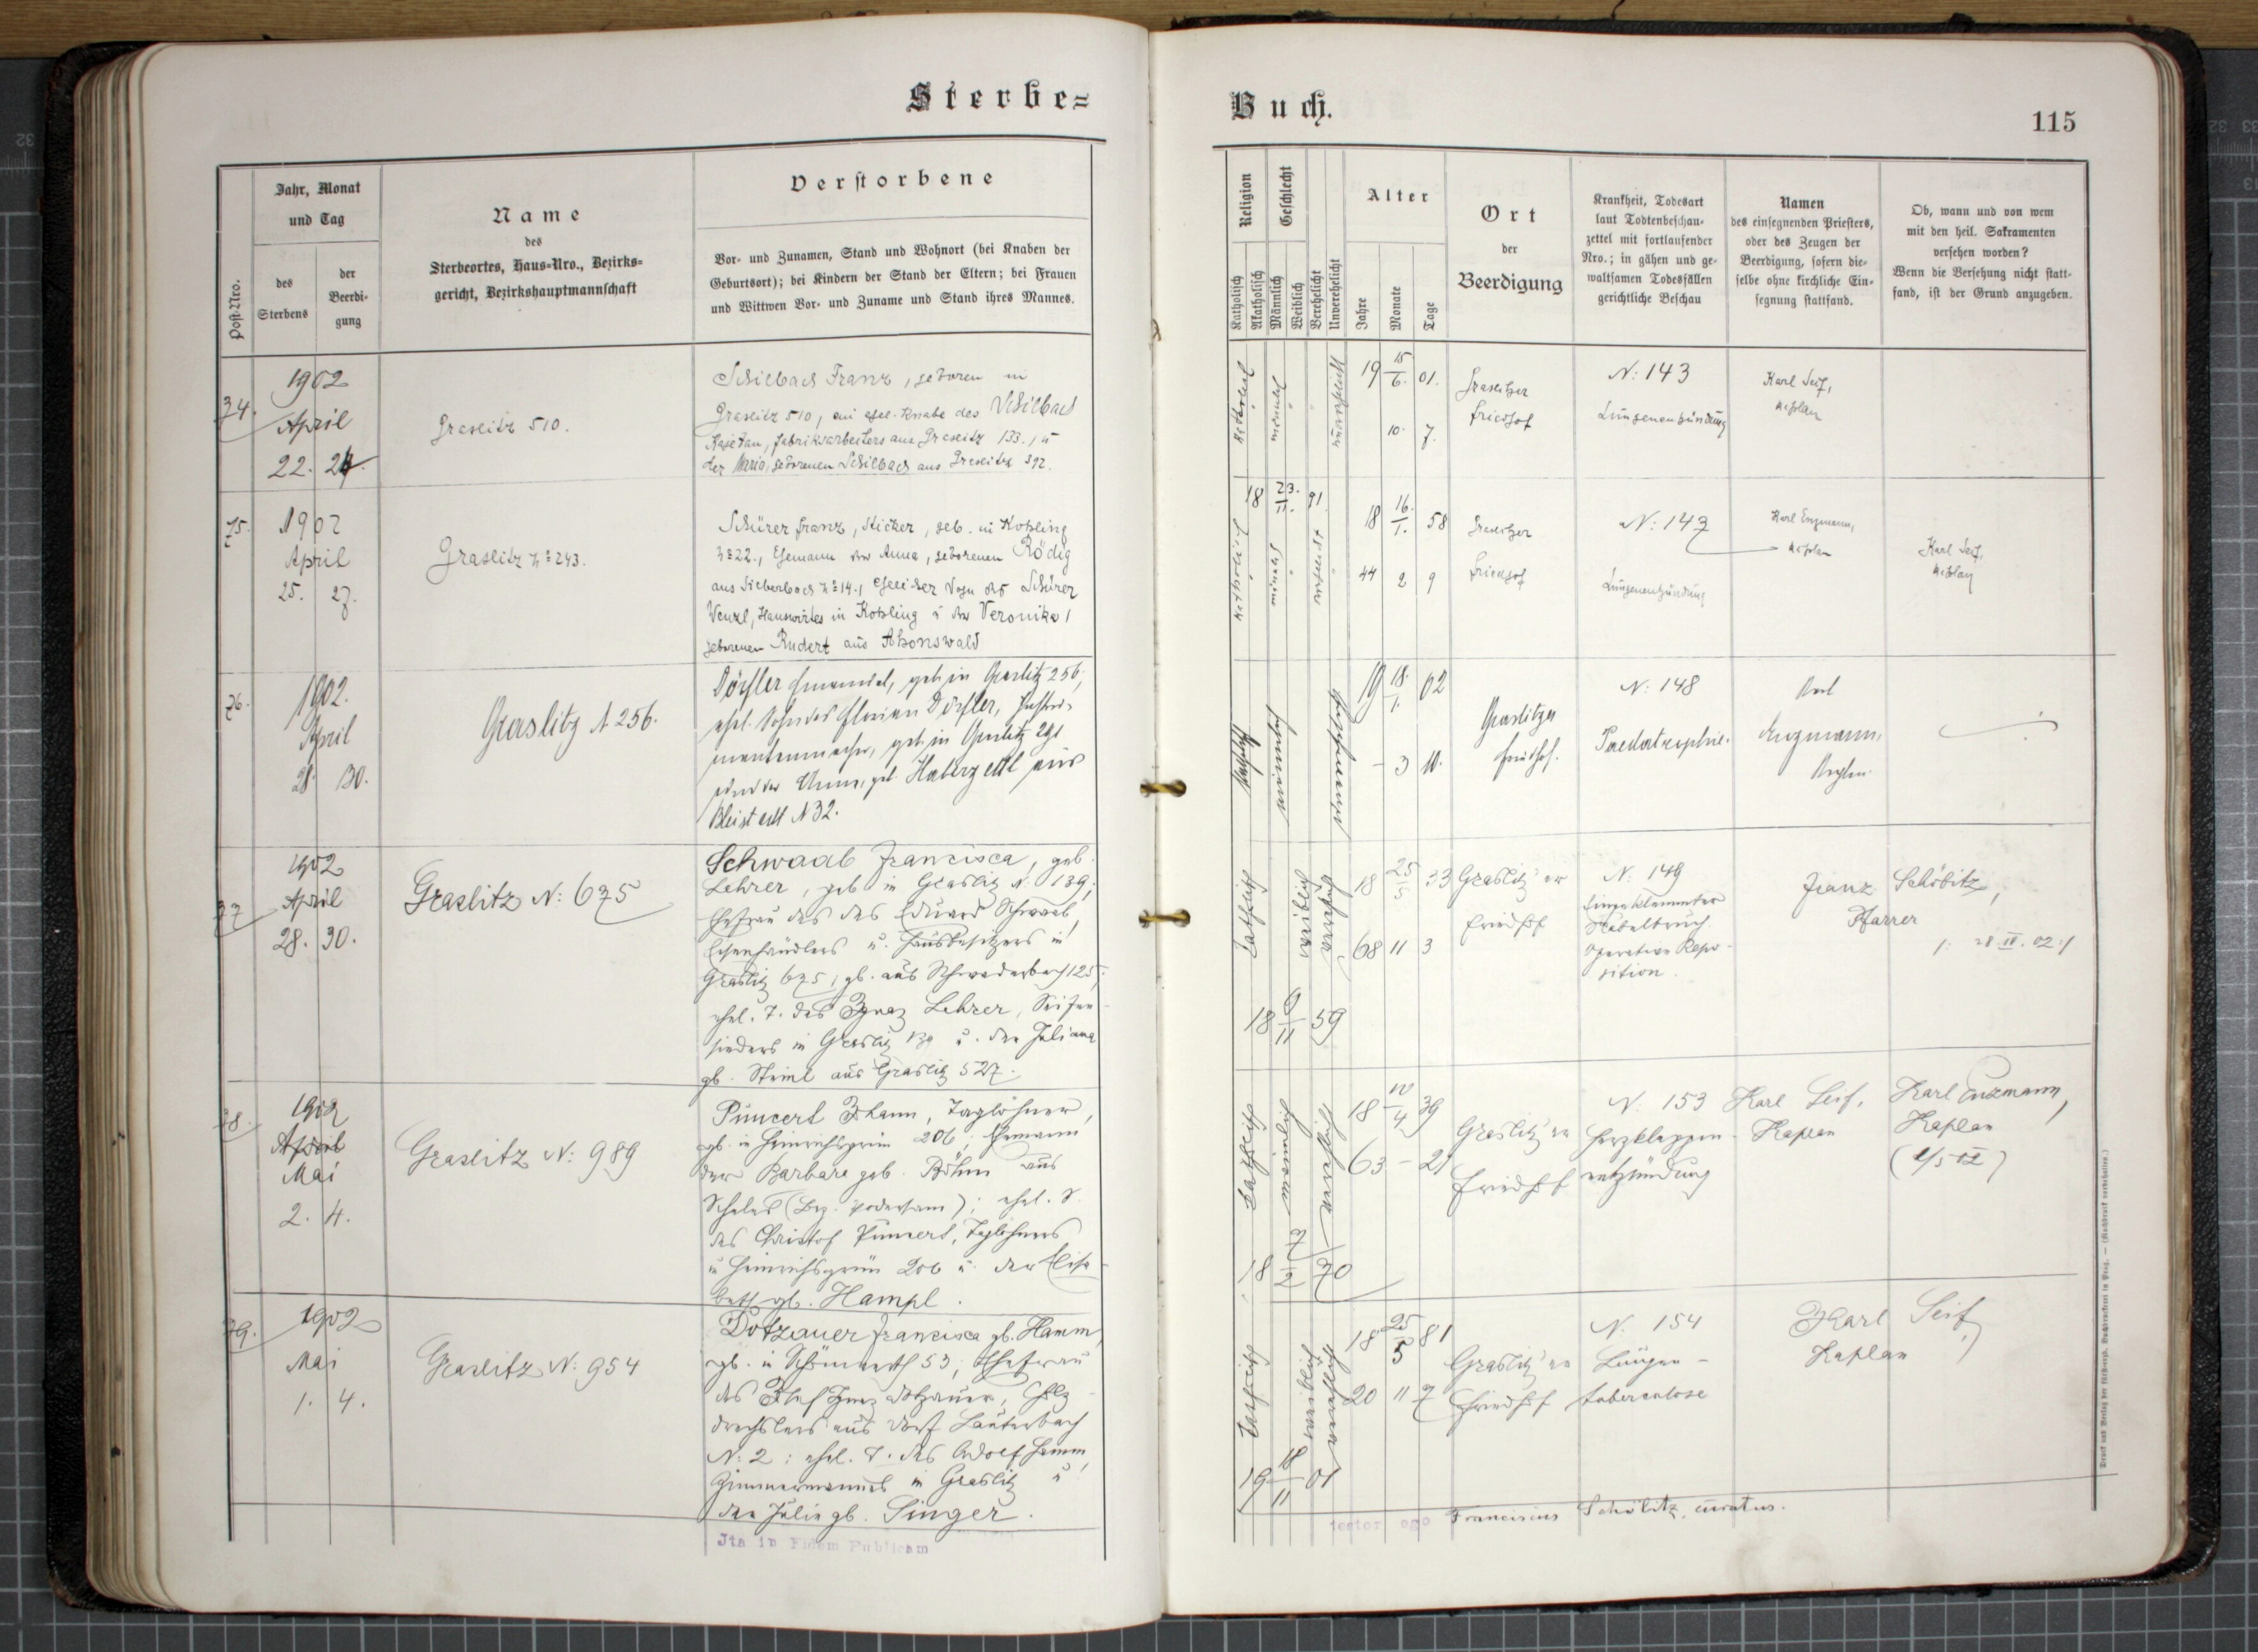 Sterbe=
Buch.
115
Post-Nro.
Jahr, Monat
und Tag
des
Sterbens
der
Beerdi=
gung
Name
des
Sterbeortes, Haus-Nro., Bezirks=
gericht, Bezirkshauptmannschaft
Verstorbene
Vor- und Zunamen, Stand und Wohnort (bei Knaben der
Geburtsort); bei Kindern der Stand der Eltern; bei Frauen
und Wittwen Vor- und Zuname und Stand ihres Mannes.
Religion
Katholisch
Akatholisch
Geschlecht
Männlich
Weiblich
Verehelicht
Unverehelicht
Alter
Jahre
Monate
Tage
Ort
der
Beerdigung
Krankheit, Todesart
laut Todtenbeschau=
zettel mit fortlaufender
Nro.; in gähen und ge=
waltsamen Todesfällen
gerichtliche Beschau
Namen
des einsegnenden Priesters,
oder des Zeugen der
Beerdigung, sofern die=
selbe ohne kirchliche Ein=
segnung stattfand.
Ob, wann und von wem
mit den heil. Sakramenten
versehen worden?
Wenn die Versehung nicht statt=
fand, ist der Grund anzugeben.
74.
1902
April
22. 24.
Graslitz 510.
Schilbach Franz, geboren in
Graslitz 510, ein ehel. Knabe des Schilbach
Kajetan, Fabriksarbeiters aus Graslitz 133., u
der Maria, geborenen Schilbach aus Graslitz 392.
katholisch
männlich
unverehelicht
19 15/6. 01.
10. 7.
Graslitzer
Friedhof
N: 143
Lungenentzündung
Karl Seif,
Kaplan
75.
1902
April
25. 27.
Graslitz No 243.
Schürer Franz, Sticker, geb. in Kohling
No 22., Ehemann der Anna, geborenen Rödig
aus Silberbach No 14., ehelicher Sohn des Schürer
Wenzl, Hauswirtes in Kohling u der Veronika,
geborenen Rudert aus Ahonswald
katholisch
männlich
verehelicht
18 23./11. 91.
18 16./1. 58
44 2 9
Graslitzer
Friedhof
N: 147
Lungenentzündung
Karl Enzmann,
Kaplan
Karl Seif,
Kaplan
76.
1902.
April
28. 30.
Graslitz N 256.
Dörfler Emanuel, geb. in Graslitz 256,
ehel. Sohn des Florian Dörfler, Instru=
mentenmacher, geb. in Graslitz 291
und der Anna, geb. Haberzettl aus
Bleistadt N 32.
katholisch
männlich
unverehelicht
19 18./1. 02
- 3 10.
Graslitzer
Friedhof.
N: 148
Paedatrophie.
Karl
Enzmann,
Kaplan.
77
1902
April
28. 30.
Graslitz N: 675
Schwaab Francisca, geb.
Lehrer, geb in Graslitz N. 139;
Ehefrau des des Eduard Schwaab,
Eisenhändlers u. Hausbesitzers in
Graslitz 675, gb. aus Schwaderbach 125;
ehel. T. des Ignaz Lehrer, Seifen=
sieders in Graslitz 139 u. der Juliana
gb. Steinl aus Graslitz 527.
katholisch
weiblich
verehelicht
18 6/11 59
18 25/5 33
68 11 3
Graslitz'er
Friedhof
N. 149
Eingeklemmter
Nabelbruch.
Operative Repo-
sition.
Franz Schöbitz,
Pfarrer
/: 28.IV. 02 :/
78.
1902
April
Mai
2. 4.
Graslitz N: 989
Püncert Johann, Taglöhner,
gb. in Heinrichsgrün 206; Ehemann
der Barbara geb. Böhm aus
Scheles (Bez. Podersam); ehel. S.
des Christof Püncert, Taglöhners
in Heinrichsgrün 206 u. der Elisa-
beth gb. Hampl.
katholisch
männlich
verehelicht
18 7/2 70
18 10/4 39
63 - 21
Graslitz'er
Friedhof
N. 153
Herzklappen-
entzündung
Karl Seif,
Kaplan
Karl Enzmann,
Kaplan
79.
1902
Mai
1. 4.
Graslitz N: 954
Dotzauer Francisca gb. Hamm,
gb. in Schönwerth 53; Ehefrau
des Josef Ignaz Dotzauer, Holz-
drechslers aus Dorf Lauterbach
N: 2; ehel. T. des Adolf Hamm,
Zimmermannes in Graslitz u
der Julie gb. Singer.
katholisch
weiblich
verehelicht
19 18/11 01
18 25/5 81
20 11 7
Graslitz'er
Friedhof
N. 154
Lungen-
tuberculose
Karl Seif,
Kaplan
Ita in Fidem Publicam
testor ego Franciscus Schöbitz, curatus.